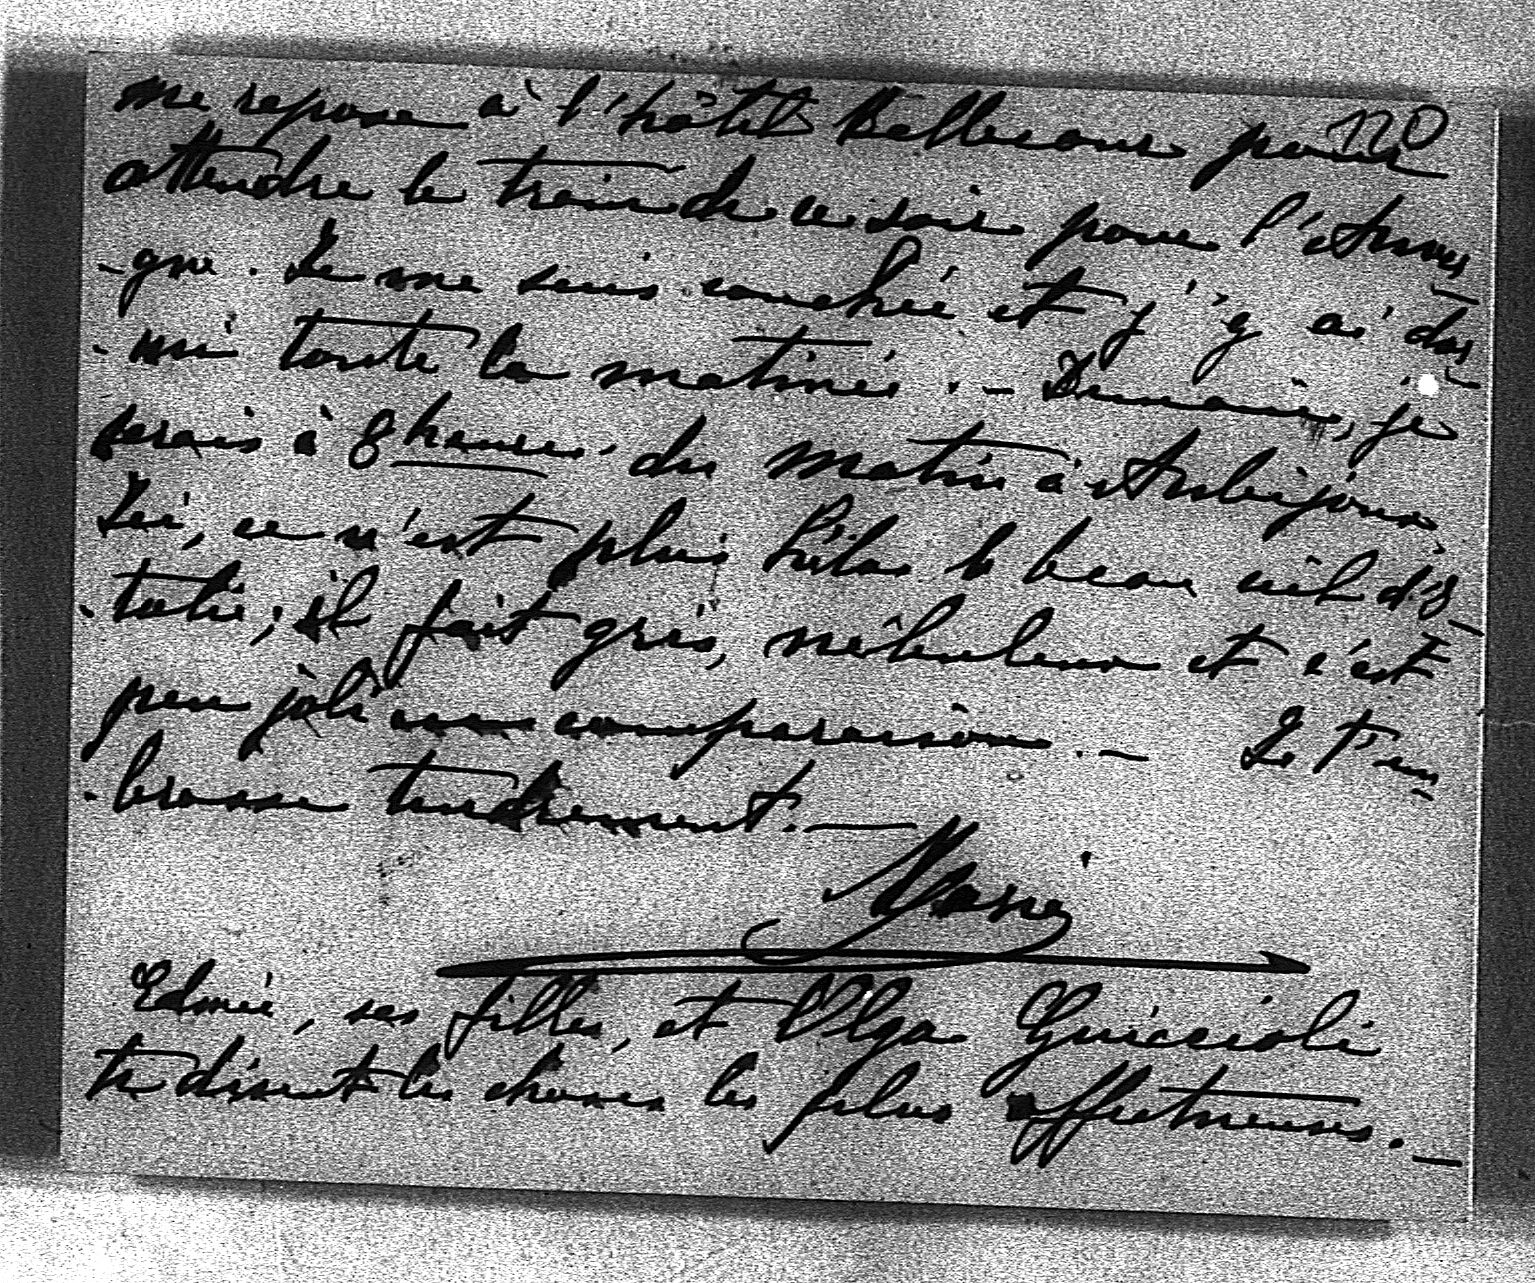 120
me repose à l'hôtel Bellecour pour
attendre le train de ce soir pour l'Auver
-gne. Je me suis couchée et j'y ai dor
-mi toute la matinée. - Demain, je
serais à 8 heures du matin à Aubijoux,
Ici, ce n'est plus hélas le beau ciel d'I
-talie; il fait gris, nébuleux et c'est
peu joli comparaison. - Je t'em
-brasse tendrement. -
Marie
Edmée, ses filles, et Olga Guiccioli
te disent les choses les plus affectueuses. -